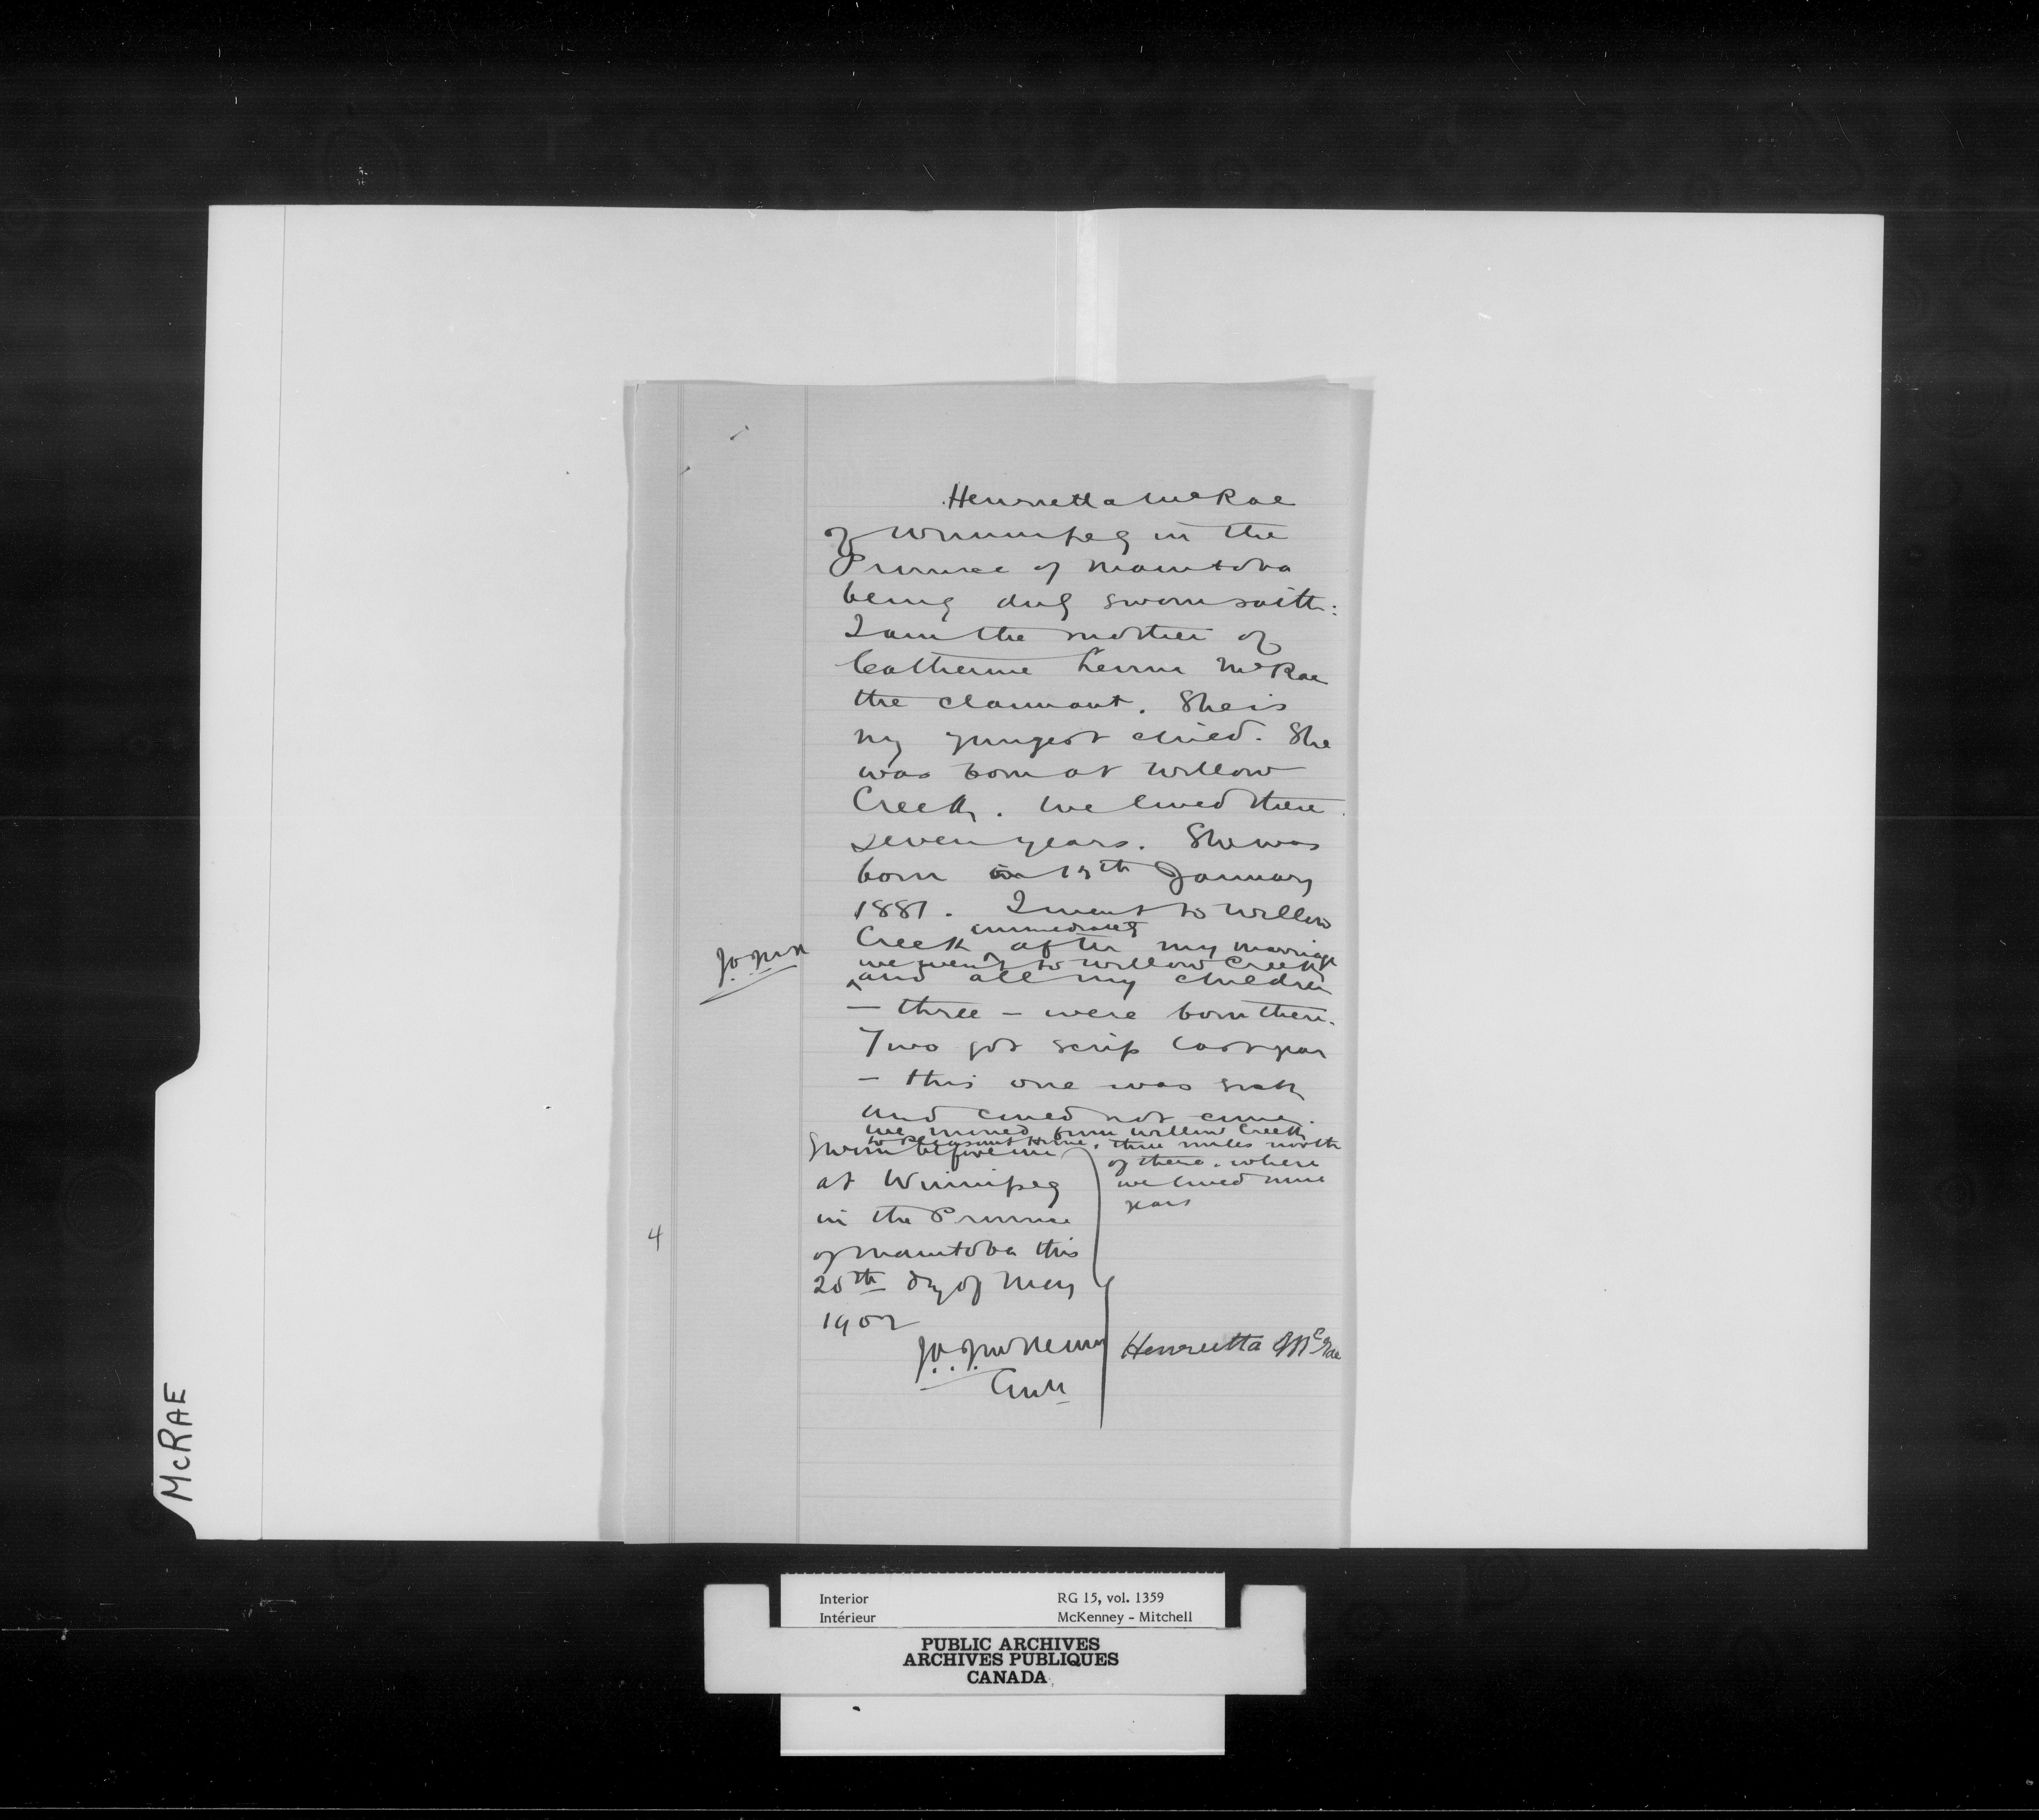 Henrietta McRae
of Winnipeg in the
Province of Manitoba
being duly sworn saith:
I am the mother of
Catherine McRae
the claimant. She is
my youngest child. She
was born at Willow
Creek. We lived there
seven years. She was
born in 15th January
1881. I went to Willow
immediately
Creek after my marriage
we went to Willow Creek
and all my children
- three - were born there.
Two got scrip last year
- this one was sick
and could not come.
We moved from Willow Creek
to Pleasant Home, three miles north
of there. where
we lived nine
years
Sworn before me
at Winnipeg
in the Province
of Manitoba this
20th day of May
1902
Henrietta McRae
4
McRAE
Interior
Intérieur
RG 15, vol. 1359
McKenney - Mitchell
PUBLIC ARCHIVES
ARCHIVES PUBLIQUES
CANADA